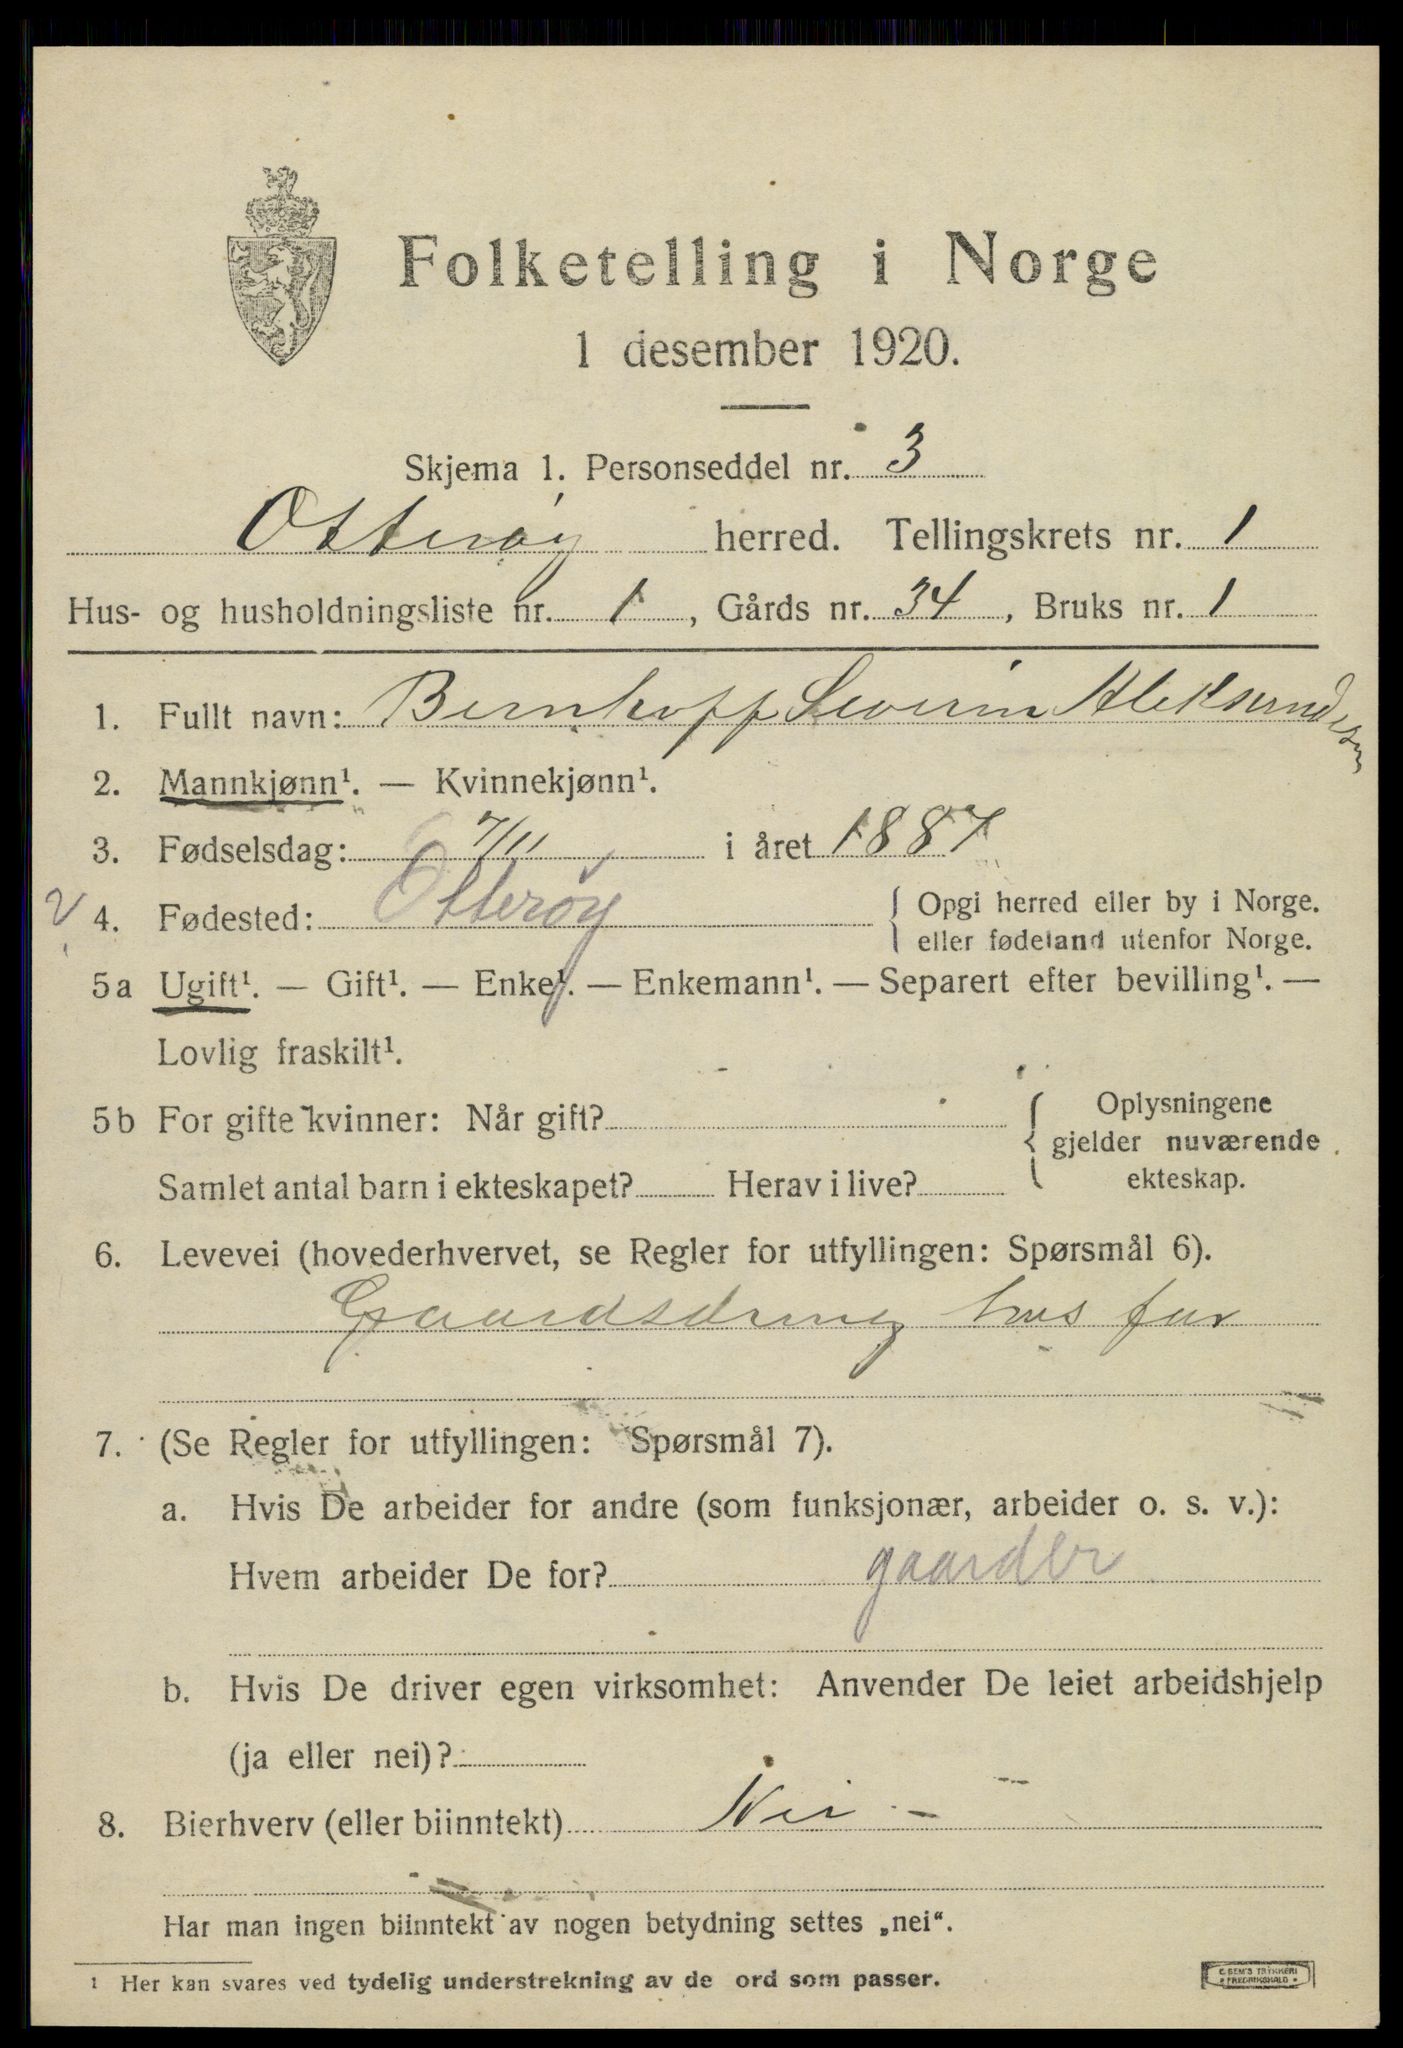 Folketelling i Norge
1 desember 1920.
Skjema 1. Personseddel nr. 3
Otterøy herred. Tellingskrets nr. 1
Hus- og husholdningsliste nr. 1, Gårds nr. 34, Bruks nr. 1
1. Fullt navn: Bernhoff Severin Aleksandersen
2. Mannkjønn¹. — Kvinnekjønn¹.
3. Fødselsdag: 7/11 i året 1887
4. Fødested: Otterøy { Opgi herred eller by i Norge.
eller fødeland utenfor Norge.
5a Ugift¹. — Gift¹. — Enke¹. — Enkemann¹. — Separert efter bevilling¹. —
Lovlig fraskilt¹.
5b For gifte kvinner: Når gift? { Oplysningene
gjelder nuværende
Samlet antal barn i ekteskapet? Herav i live? ekteskap.
6. Levevei (hovederhvervet, se Regler for utfyllingen: Spørsmål 6).
Gaardsdreng hos far
7. (Se Regler for utfyllingen: Spørsmål 7).
a. Hvis De arbeider for andre (som funksjonær, arbeider o. s. v.):
Hvem arbeider De for? gaardbr
b. Hvis De driver egen virksomhet: Anvender De leiet arbeidshjelp
(ja eller nei)?
8. Bierhverv (eller biinntekt) Nei -
Har man ingen biinntekt av nogen betydning settes „nei“.
¹ Her kan svares ved tydelig understrekning av de ord som passer.
E. SEM'S TRYKKERI
FREDRIKSHALD